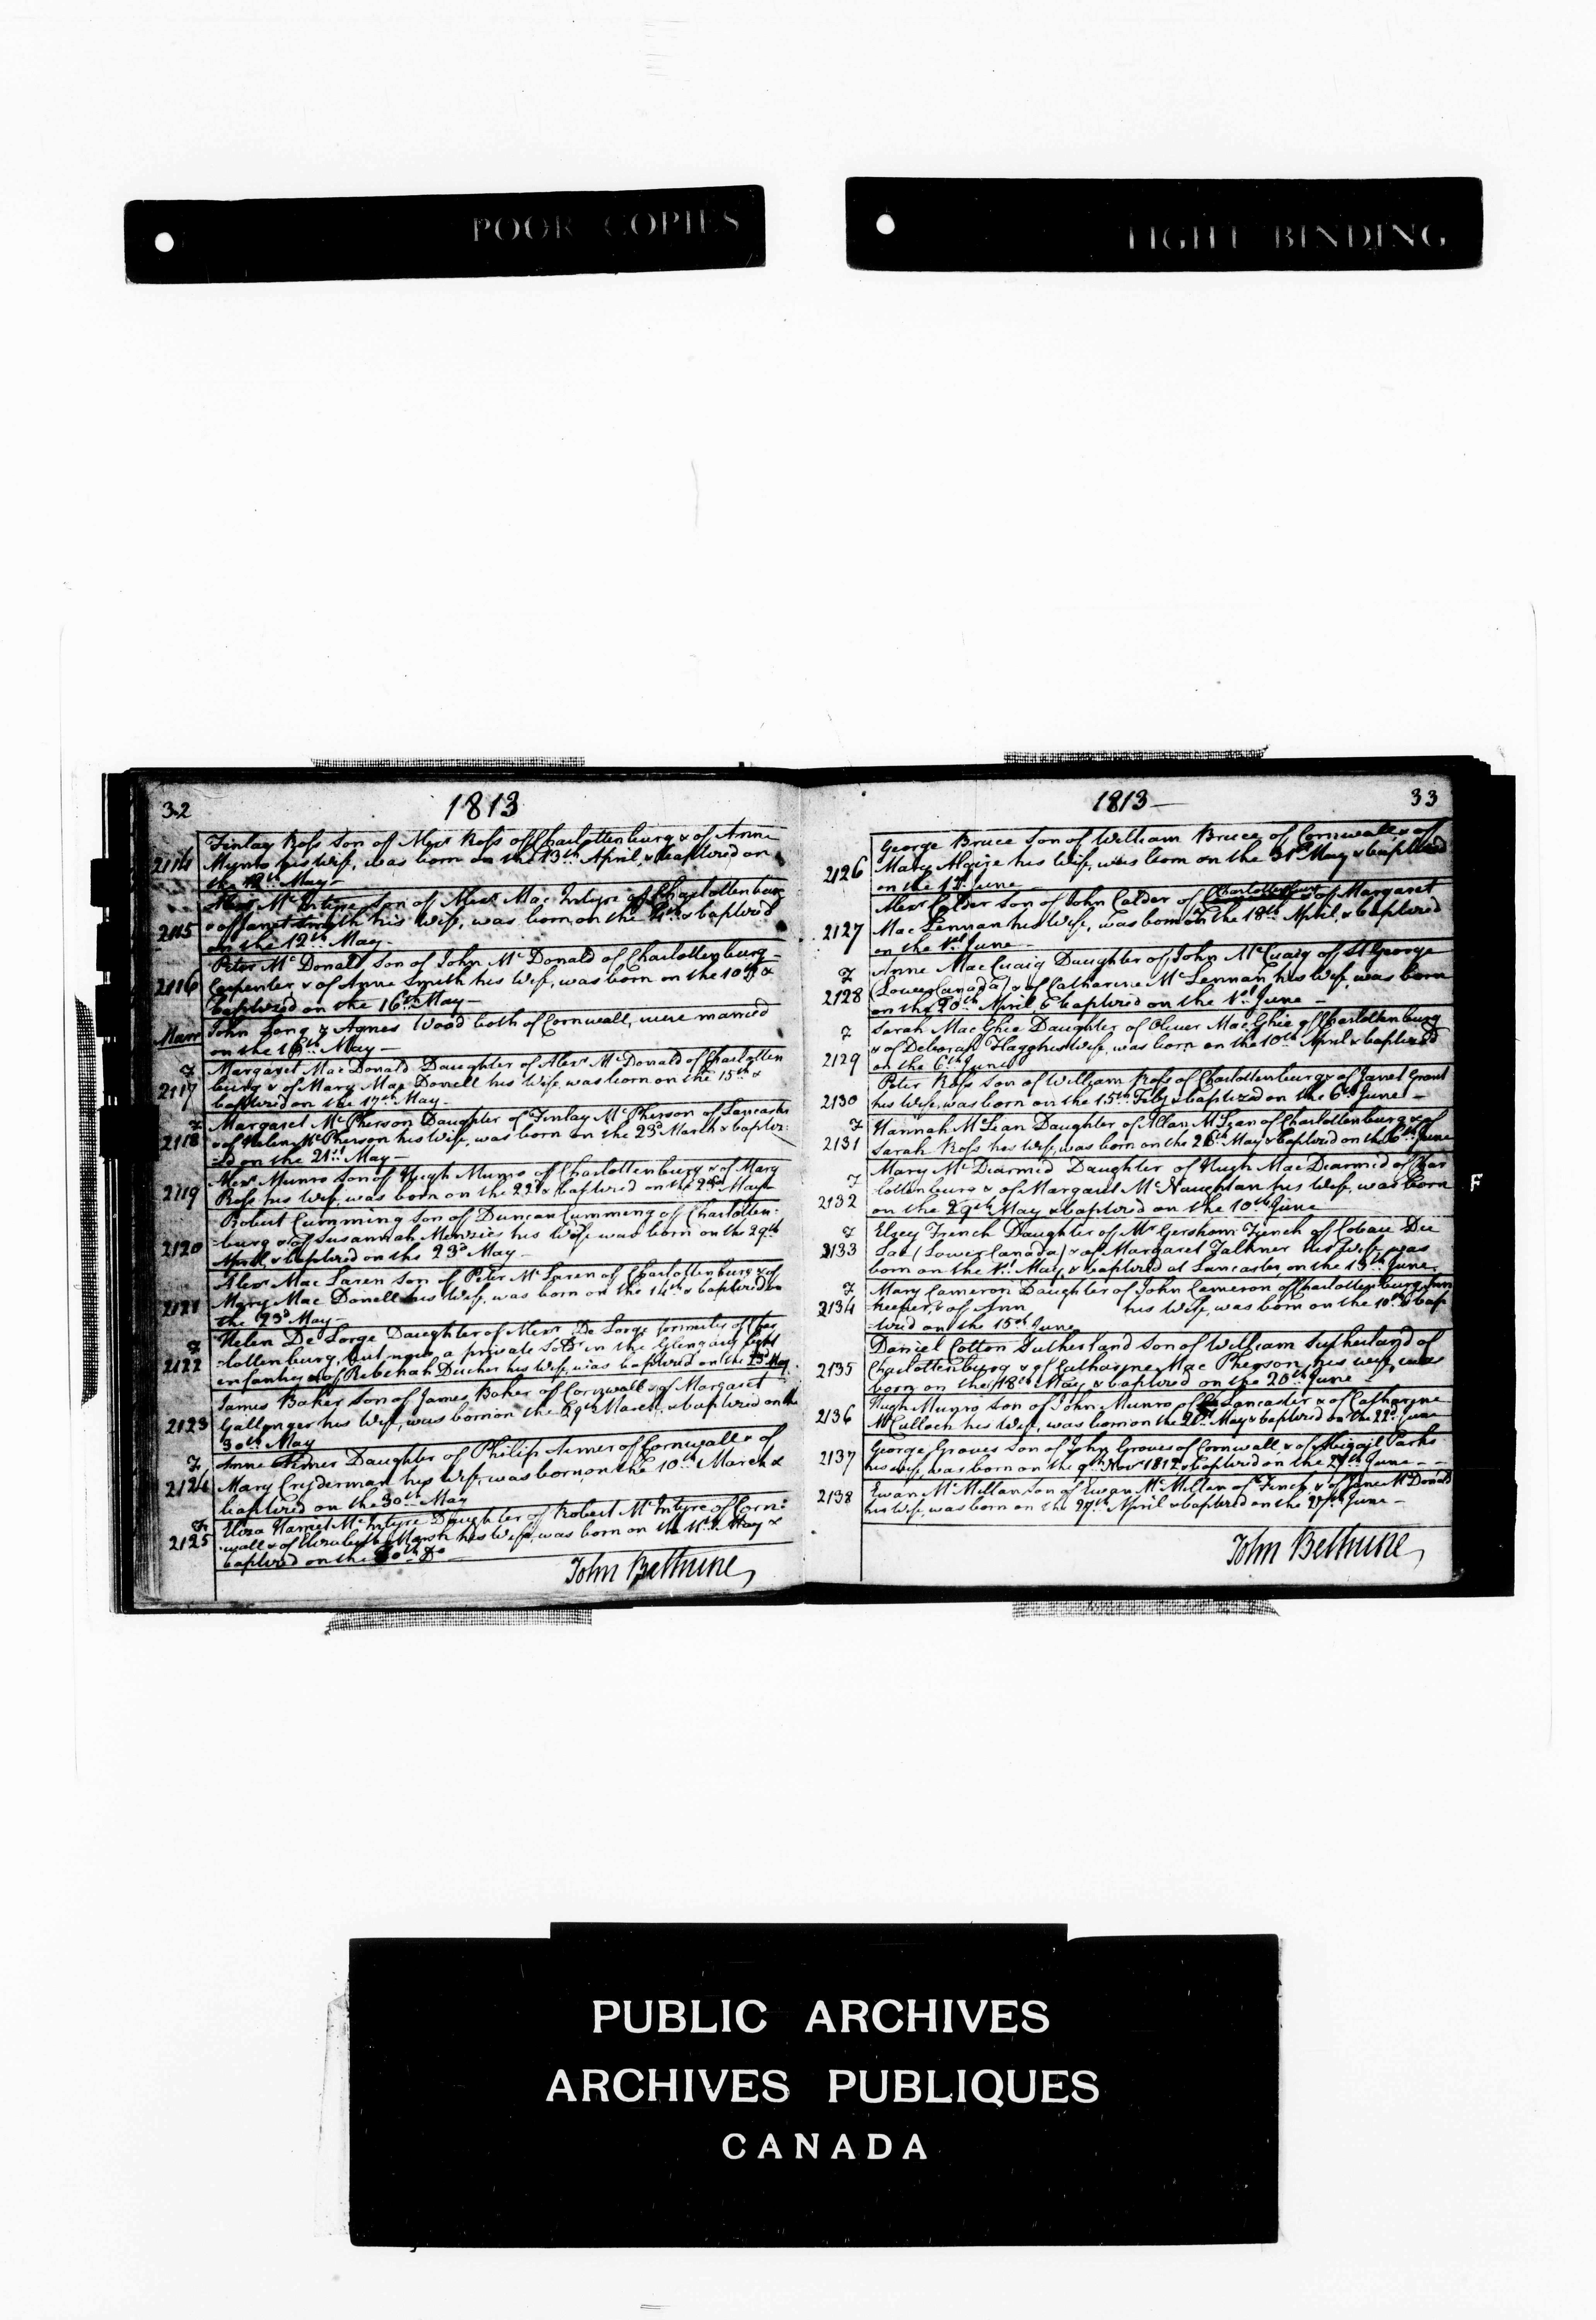 POOR COPIES
TIGHT BINDING
32
1813
Finlay Ross Son of Alexr Ross of Charlottenburg & of Anne
2114 Munro his Wife, was born on the 13th April, & baptized on
the 12th May—
Alexr McIntyre Son of Alexr Mac Intyre of Charlottenburg
2115 & of Janet Smith his Wife, was born on the 4th & baptized
on the 12th May—
Peter McDonald, Son of John McDonald of Charlottenburg—
2116 Carpenter & of Anne Smith his Wife, was born on the 10th &
baptized on the 16th May—
Marr John Long & Agnes Wood both of Cornwall, were married
on the 16th May—
F Margaret MacDonald Daughter of Alexr McDonald of Charlotten
2117 burg & of Mary Mac Donell his Wife, was born on the 15th &
baptized on the 17th May—
F Margaret McPherson Daughter of Finlay McPherson of Lancaster
2118 & of Helen McPherson his Wife, was born on the 23d March & baptiz:
=ed on the 21st May—
Alexr Munro Son of Hugh Munro of Charlottenburg & of Mary
2119 Ross his Wife, was born on the 22d & baptized on the May
Robert Cumming Son of Duncan Cumming of Charlotten:
2120 =burg & of Susannah Menzies his Wife was born on the 29th
April & baptized on the 23d May—
Alexr Mac Laren Son of Peter McLaren of Charlottenburg & of
2121 Mary Mac Donell his Wife, was born on the 14th & baptized on
the 23d May—
F Helen De Lorge Daughter of Alexr De Lorge formerly of Char
2122 =lottenburg, but now a private Soldr in the Glengary light
infantry & of Rebekah his Wife, was baptized on the 23d May.
James Baker Son of James Baker of Cornwall & of Margaret
2123 Gallinger his Wife, was born on the 29th March & baptized on the
30th May
F Anne Armer Daughter of Philip Armer of Cornwall & of
2124 Mary Cryderman his Wife, was born on the 10th March &
baptized on the 30th May
F Eliza Harriet McIntyre Daughter of Robert McIntyre of Corn=
2125 =wall & of Elizabeth Marsh his Wife, was born on the May &
baptized on the 30th Do—
John Bethune,
1813—
33
George Bruce Son of William Bruce of Cornwall & of
2126 Mary Algire his Wife, was born on the 31st May & baptized
on the 1st June
Alexr Calder Son of John Calder of Charlottenburg & of Margaret
2127 Mac Lennan his Wife, was born on the 18th April, & baptized
on the 1st June—
F Anne MacCuaig Daughter of John McCuaig of St George
2128 (Lower Canada) & of Catharine McLennan his Wife, was born
on the 20th April, & baptized on the 1st June—
F Sarah MacGhie Daughter of Oliver MacGhie of Charlottenburg
2129 & of Deborah Flagg his Wife, was born on the 10th April & baptized
on the 6th June
Peter Ross Son of William Ross of Charlottenburg & of Janet Grant
2130 his Wife, was born on the 15th Feby & baptized on the 6th June—
F Hannah McLean Daughter of Allan McLean of Charlottenburg & of
2131 Sarah Ross his Wife, was born on the 26th May & baptized on the 6th June
Mary McDiarmid Daughter of Hugh MacDiarmid of Char
F
2132 lottenburg & of Margaret McNaughtan his Wife, was born
on the 29th May & baptized on the 10th June
F
F Elzey French Daughter of Mr Gershom French of Coteau Du
2133 Lac (Lower Canada) & of Margaret Falkner his Wife, was
born on the 1st May, & baptized at Lancaster, on the 13th June.
F Mary Cameron Daughter of John Cameron of Charlottenburg Inn
2134 keeper, & of Ann his Wife, was born on the 10th & bap
=tized on the 15th June
Daniel Cotton Sutherland Son of William Sutherland of
2135 Charlottenburg & of Catharine Mac Pherson, his wife, was
born on the 18th May & baptized on the 20th June—
Hugh Munro Son of John Munro of Lancaster & of Catharine
2136 McCulloch his Wife, was born on the May & baptized on the 22d June
2137 George Graves Son of John Graves of Cornwall & of Abigail Parks
his wife, was born on the 9th Novr 1812 & baptized on the 27th June—
2138 Ewan McMillan Son of Ewan McMillan of Finch, & of Jane McDonald
his Wife, was born on the 27th April & baptized on the 27th June—
John Bethune,
PUBLIC ARCHIVES
ARCHIVES PUBLIQUES
CANADA